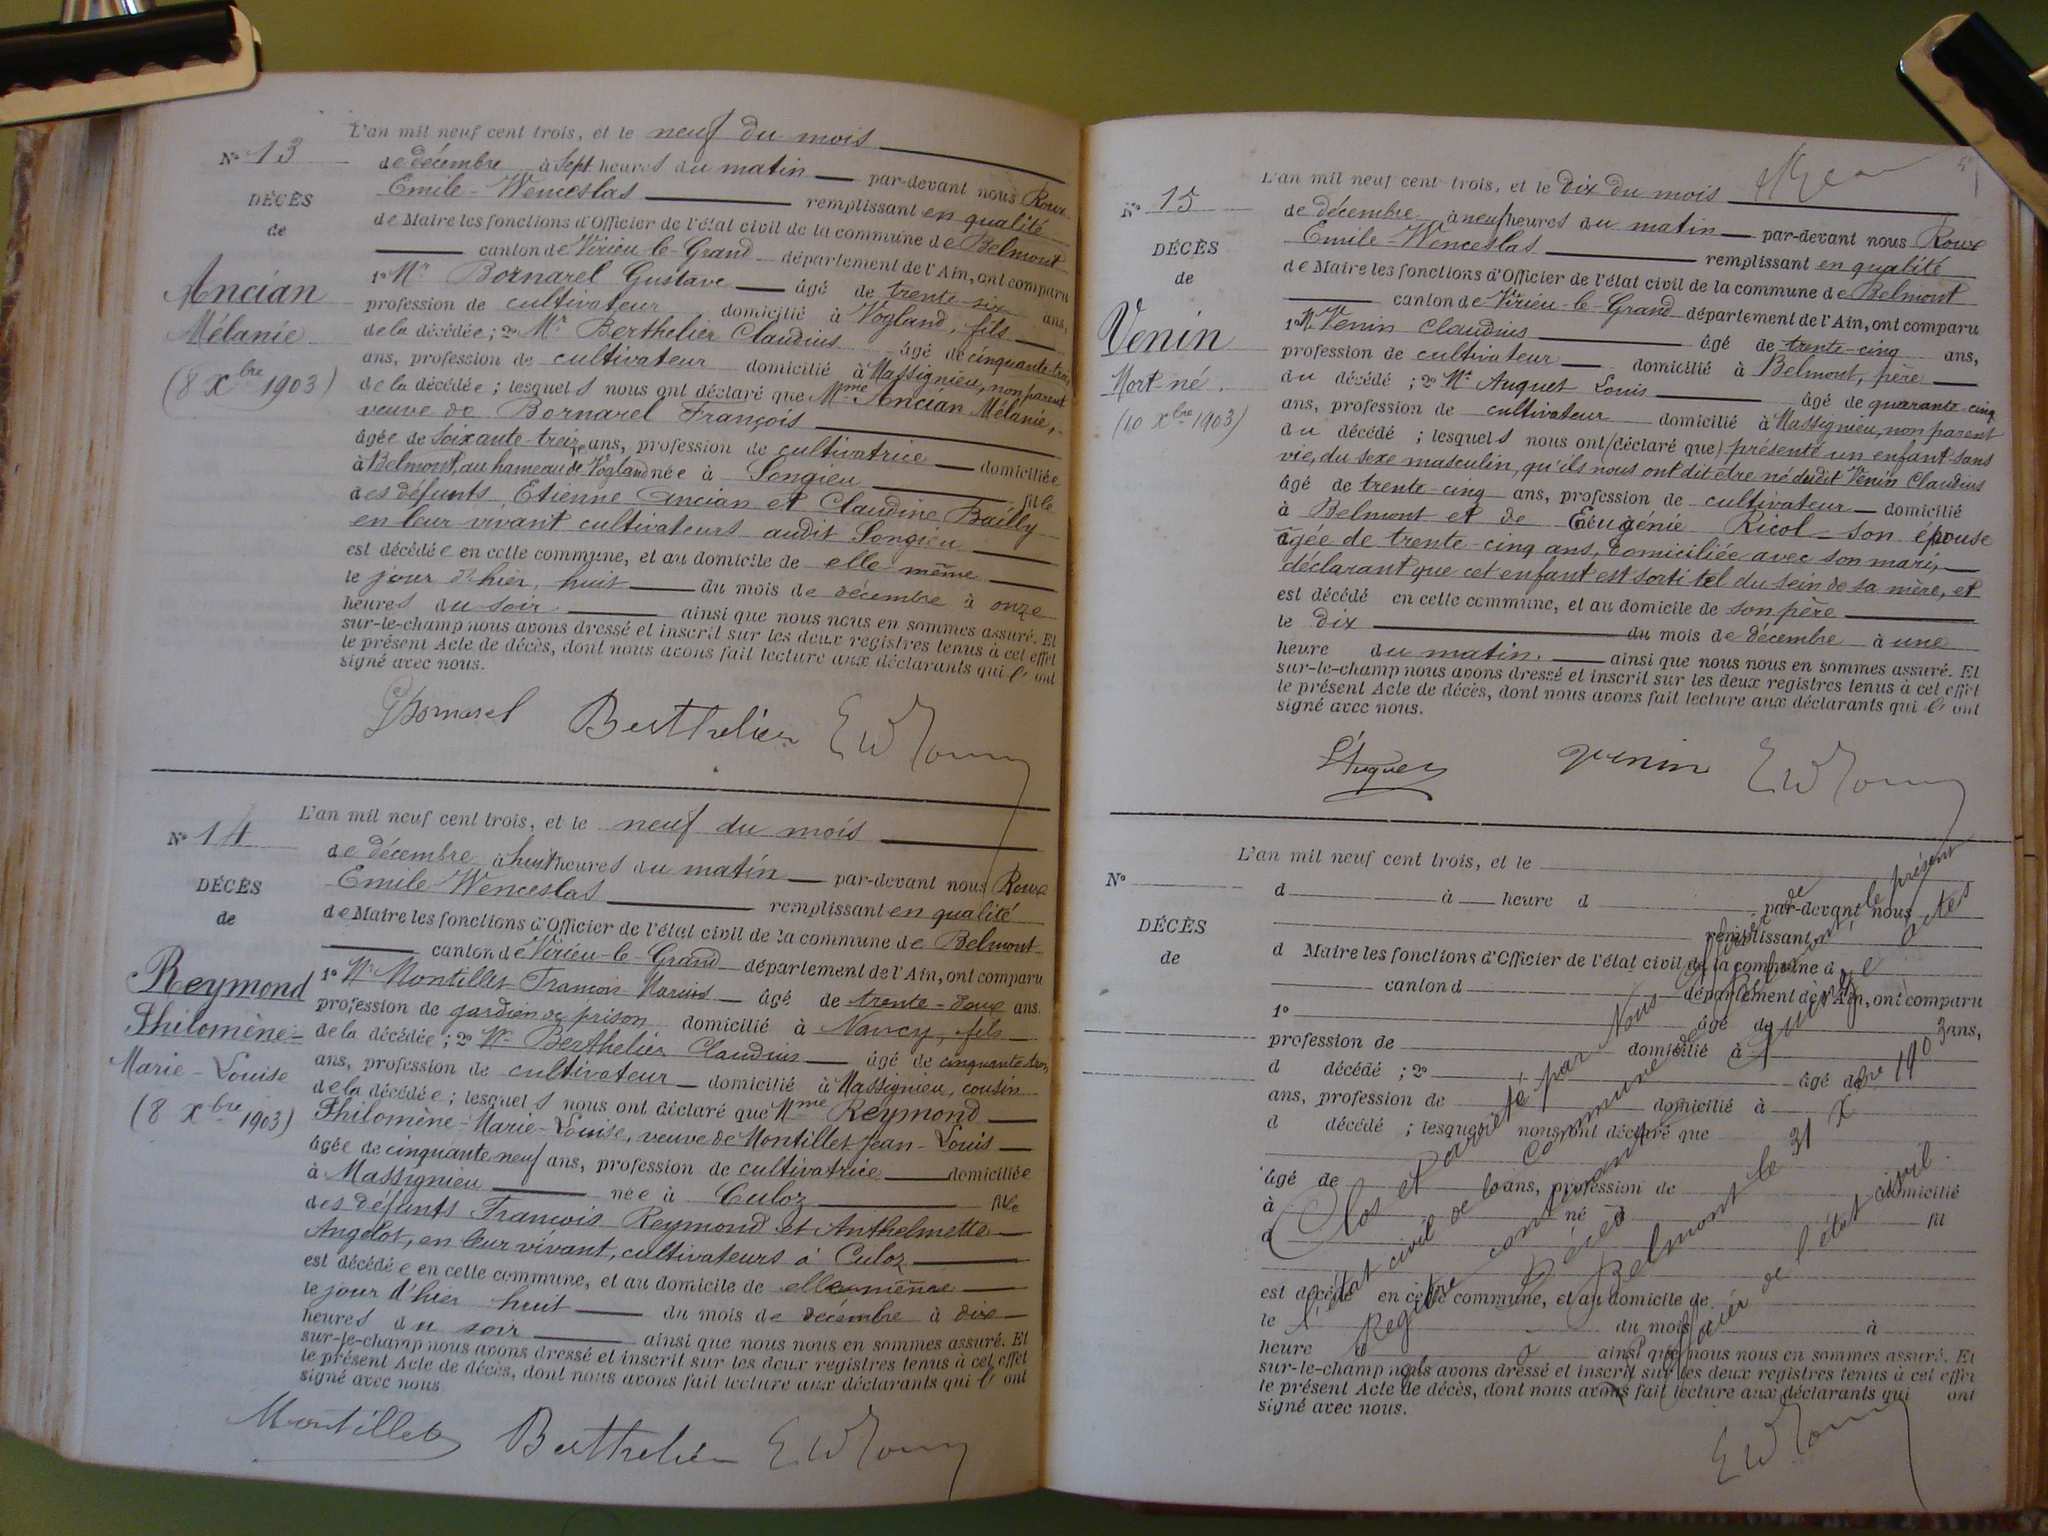 L'an mil neuf cent trois, et le neuf du mois
N° 13
de décembre à sept heures du matin par-devant nous Roux
Emile-Wenceslas remplissant en qualité
DÉCÈS
de Maire les fonctions d'Officier de l'état civil de la commune de Belmont
de
canton de Virieu-le-Grand département de l'Ain, ont comparu
Ancian
Mélanie
(8 Xbre 1903)
1° Mr Bornarel Gustave âgé de trente-six ans,
profession de cultivateur domicilié à Vogland, fils
de la décédée; 2° Mr Berthelier Claudius âgé de cinquante-trois
ans, profession de cultivateur domicilié à Massignieu, non parent
de la décédée; lesquels nous ont déclaré que Mme Ancian Mélanie,
veuve de Bornarel François
âgée de soixante-treize ans, profession de cultivatrice domiciliée
à Belmont, au hameau de Vogland née à Songieu fille
des défunts Etienne Ancian et Claudine Bailly
en leur vivant cultivateurs audit Songieu
est décédée en cette commune, et au domicile de elle même
le jour d'hier, huit du mois de décembre à onze
heures du soir. ainsi que nous nous en sommes assuré. Et
sur-le-champ nous avons dressé et inscrit sur les deux registres tenus à cet effet
le présent Acte de décès, dont nous avons fait lecture aux déclarants qui l' ont
signé avec nous.
GBornarel Berthelier EWRoux
L'an mil neuf cent trois, et le neuf du mois
N° 14
de décembre à huit heures du matin par-devant nous Roux
Emile-Wenceslas remplissant en qualité
DÉCÈS
de Maire les fonctions d'Officier de l'état civil de la commune de Belmont
de
canton de Virieu-le-Grand département de l'Ain, ont comparu
Reymond
Philomène-
Marie-Louise
(8 Xbre 1903)
1° Mr Montillet François Marius âgé de trente-deux ans
profession de gardien de prison domicilié à Nancy, fils
de la décédée; 2° Mr Berthelier Claudius âgé de cinquante-trois
ans, profession de cultivateur domicilié à Massignieu, cousin
de la décédée; lesquels nous ont déclaré que Mme Reymond
Philomène-Marie-Louise, veuve de Montillet Jean-Louis
âgée de cinquante neuf ans, profession de cultivatrice domiciliée
à Massignieu née à Culoz fille
des défunts François Reymond et Anthelmette
Angelot, en leur vivant, cultivateurs à Culoz
est décédée en cette commune, et au domicile de elle même
le jour d'hier huit du mois de décembre à dix
heures du soir ainsi que nous nous en sommes assuré. Et
sur-le-champ nous avons dressé et inscrit sur les deux registres tenus à cet effet
le présent Acte de décès, dont nous avons fait lecture aux déclarants qui l' ont
signé avec nous.
Montillet Berthelier EWRoux
L'an mil neuf cent trois, et le Dix du mois
N° 15
de décembre à neuf heures du matin par-devant nous Roux
Emile-Wenceslas remplissant en qualité
DÉCÈS
de Maire les fonctions d'Officier de l'état civil de la commune de Belmont
de
canton de Virieu-le-Grand département de l'Ain, ont comparu
Venin
Mort né.
(10 Xbre 1903)
1° Mr Venin Claudius âgé de trente-cinq ans,
profession de cultivateur domicilié à Belmont, père
du décédé; 2° Mr Auguet Louis âgé de quarante cinq
ans, profession de cultivateur domicilié à Massignieu, non parent
du décédé; lesquels nous ont (déclaré que) présenté un enfant sans
vie, du sexe masculin, qu'ils nous ont dit être né dudit Venin Claudius
âgé de trente-cinq ans, profession de cultivateur domicilié
à Belmont et de Eugénie Ricol son épouse
âgée de trente-cinq ans, domiciliée avec son mari,
déclarant que cet enfant est sorti tel du sein de sa mère, et
est décédé en cette commune, et au domicile de son père
le dix du mois de décembre à une
heure du matin. ainsi que nous nous en sommes assuré. Et
sur-le-champ nous avons dressé et inscrit sur les deux registres tenus à cet effet
le présent Acte de décès, dont nous avons fait lecture aux déclarants qui l' ont
signé avec nous.
LAuguet Venin EWRoux
L'an mil neuf cent trois, et le
N°
d à heure d par-devant nous
remplissant
DÉCÈS
d Maire les fonctions d'Officier de l'état civil de la commune d
de
canton d département de l'Ain, ont comparu
1° âgé de ans,
profession de domicilié à
d décédé; 2° âgé de
ans, profession de domicilié à
d décédé; lesquels nous ont déclaré que
âgé de ans, profession de domicilié
à né à
d fil
est décédé en cette commune, et au domicile de
le du mois à
heure ainsi que nous nous en sommes assuré. Et
sur-le-champ nous avons dressé et inscrit sur les deux registres tenus à cet effet
le présent Acte de décès, dont nous avons fait lecture aux déclarants qui ont
signé avec nous.
Clos et arrêté par Nous de
l'état civil de la commune de Belmont, le présent
Registre contenant quinze actes
de Décès
à Belmont le 31 Xbre 1903
L'officier de l'état civil.
EWRoux